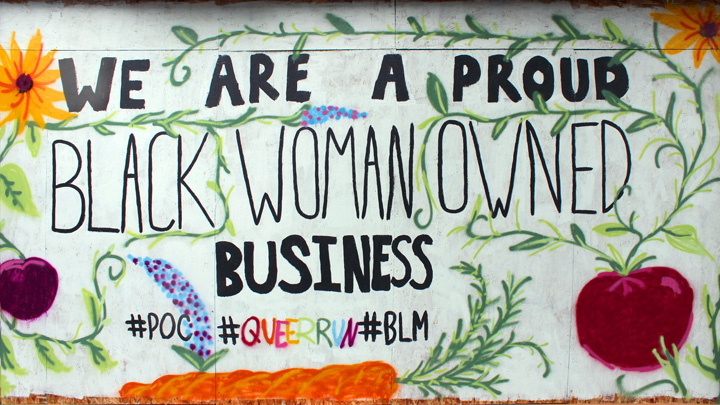 WE ARE A PROUD
BLACK WOMAN OWNED
BUSINESS
#POC #QUEERRUN #BLM